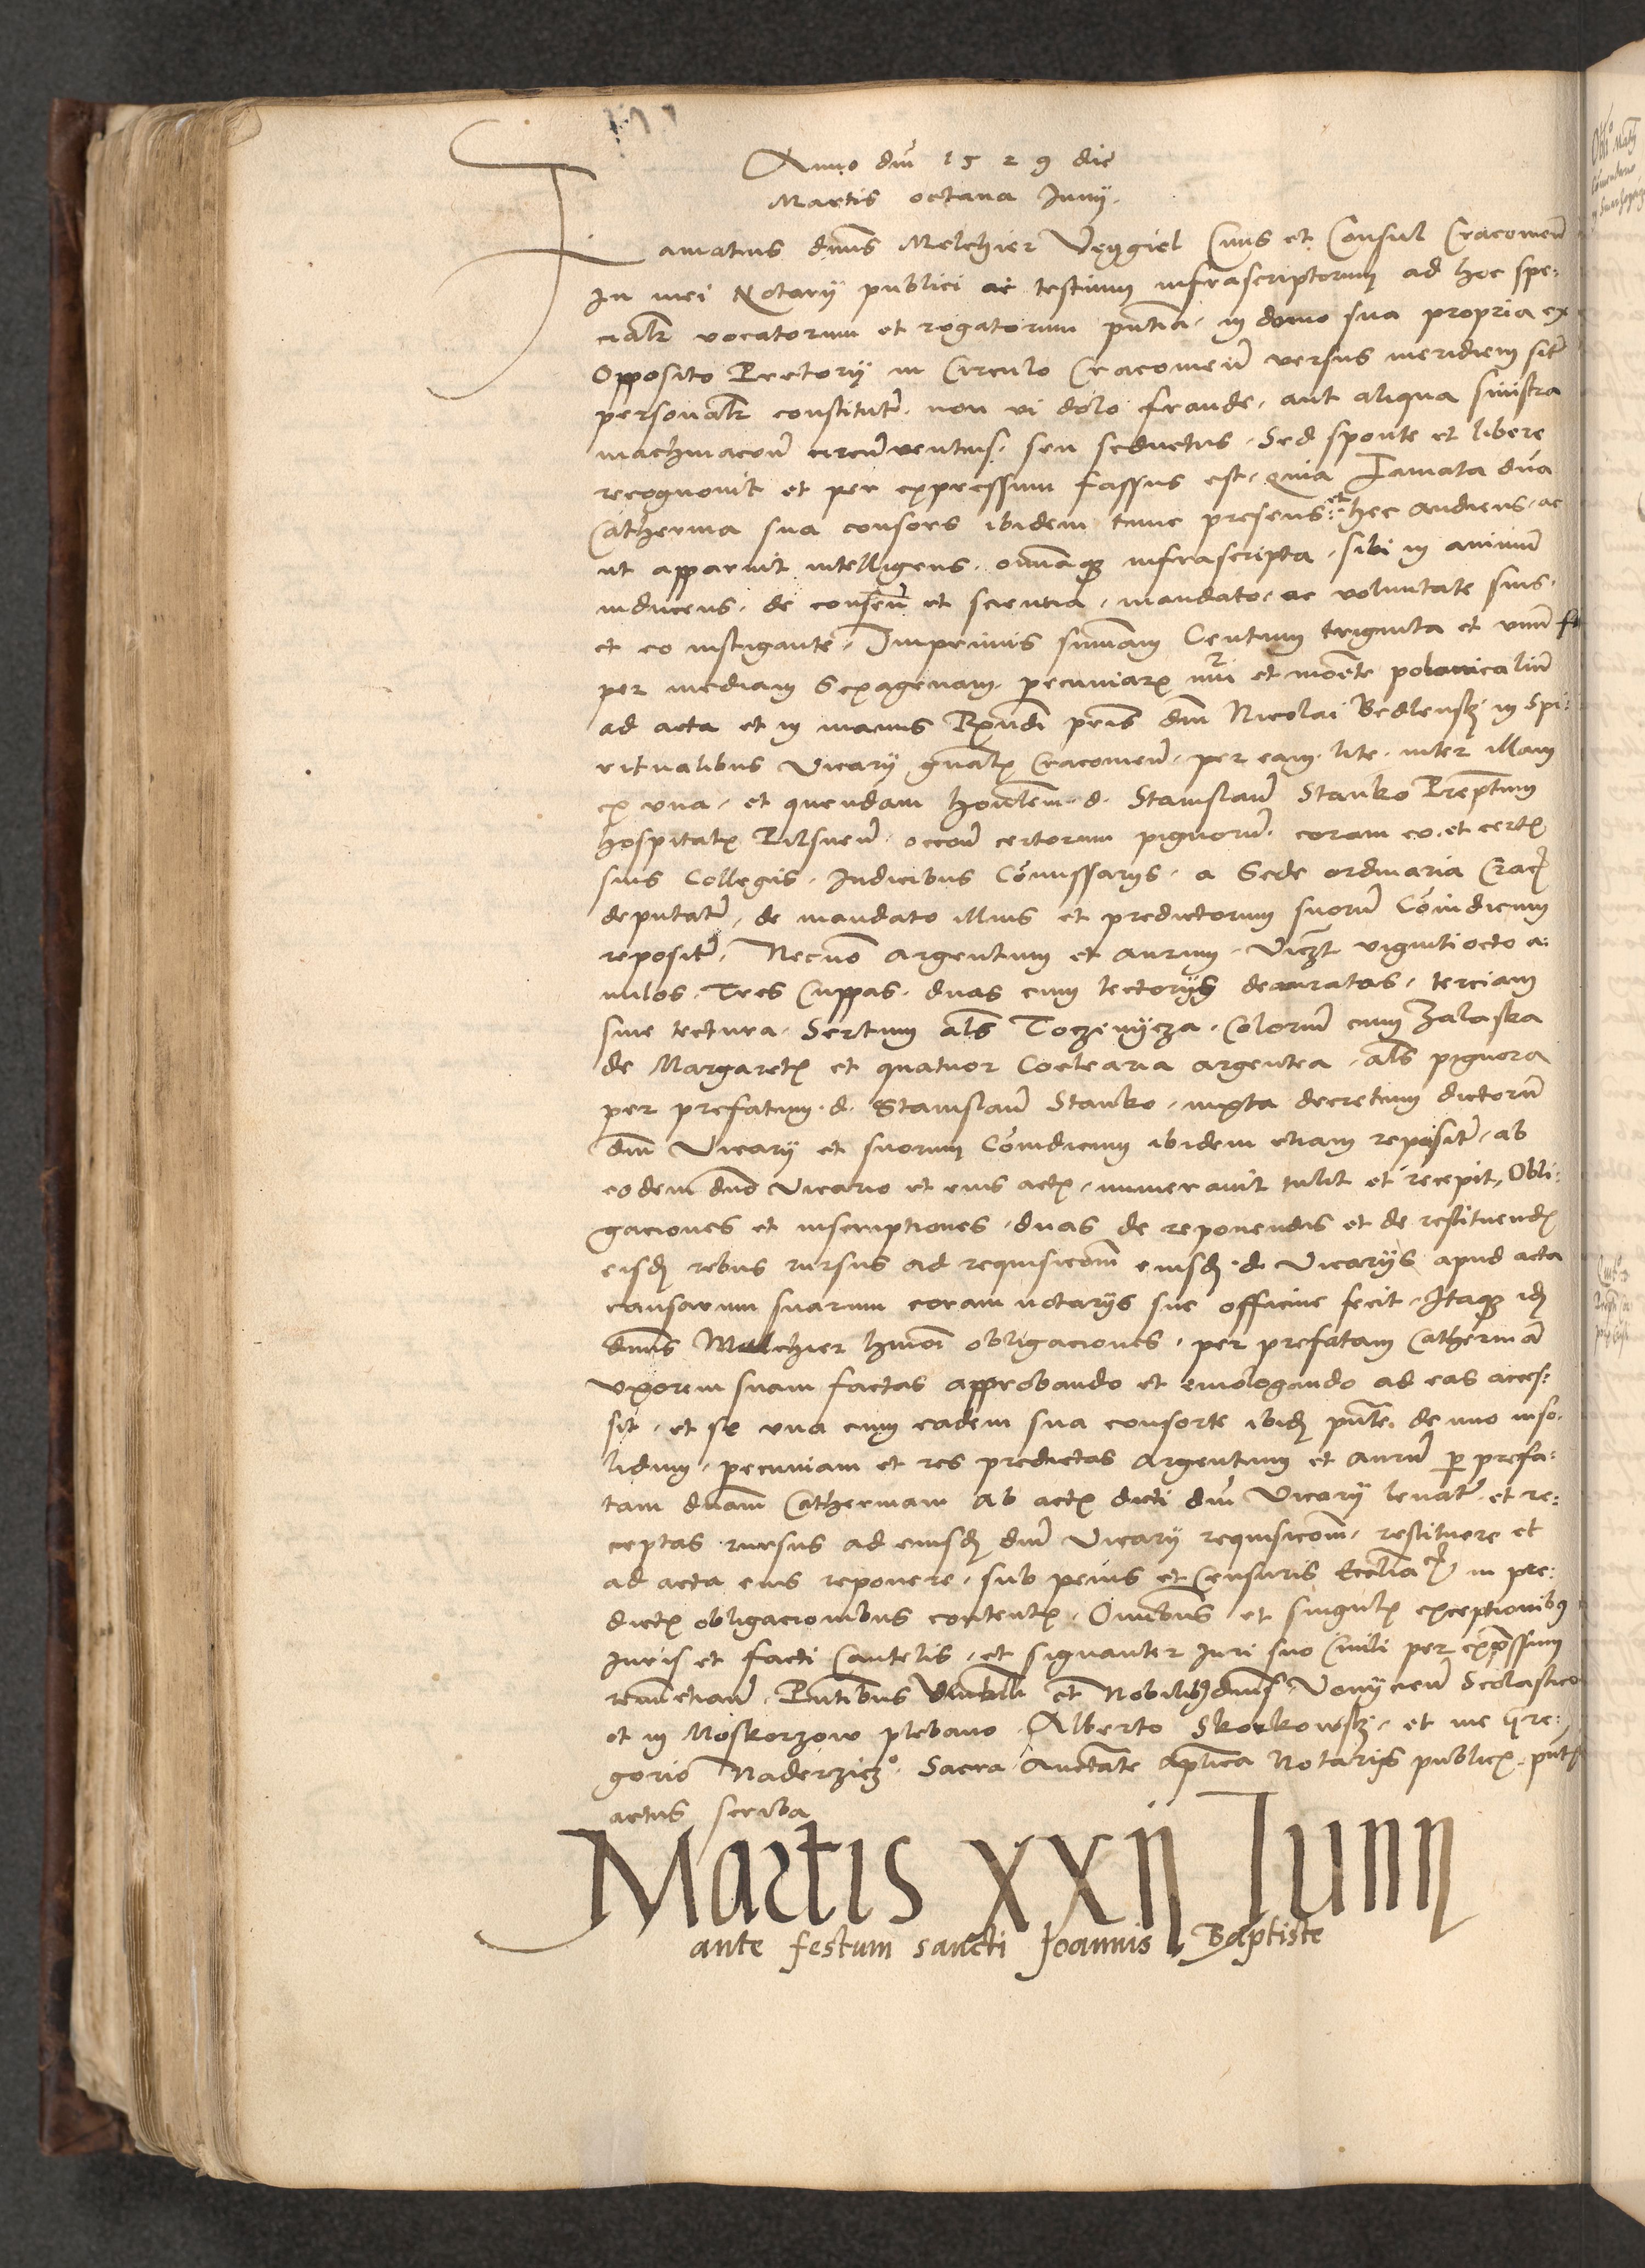 Anno dnī 1529 die
Martis octava Junij.
Famatus dnūs Melchier Veygiel Civis et Consul Cracovieñ
In mei Notarij publici ac testium infrascriptorum ad hoc spe:
cialr vocatorum et rogatorum pñtia, in domo sua propria ex
Opposito Pretorij in Circulo Cracovieñ versus meridiem sitr
personalr constitutr. non vi dolo fraude, aut aliqua sinistra
machinacoñ circūventus, seu seductus. Sed sponte et libere
recognovit et per expressum fassus est, Quia Famata dña
Catherina sua consors ibidem tunc presens et hec audiens, ac
ut apparuit intelligens, omnāqz infrascripta, sibi in animū
inducens, de conseñ et sciencia, mandato, ac voluntate suis,
et eo instigante, Imprimis summam Centum triginta et unū
per mediam sexagenam, pecuniarz nūri et monēte polonicaliū
ad acta et in manus Rxndi pris dnī Nicolai Bedlensz in Spi:
ritualibus Vicarij gnalz Cracovieñ, per eam, lite, inter illam
ex una, et quendam honblem d. Stanislaū Stanko Preptum
hospitalz Pilsneñ occoñ certorum pignorū, coram eo, et certz
suis Collegis, Iudicibus Cōmissarijs, a Sede ordinaria Crac
deputatr, de mandato illius et predictorum suorū Cōiudicum
repositr, Necnō argentum et aurum, viczt vigintiocto a:
nulos, Tres Cuppas, duas cum tectorijs deauratas, terciam
sine tectura, Sertum als Toczenycza, Colorū cum Zalaska
de Margaretz et quatuor Coclearia argentea, als pignora
per prefatum d. Stanislaū Stanko, iuxta decretum dictorū
dnī Vicarij et suorum Cōiudicum ibidem etiam repositr, ab
eodem dnō Vicario et eius actz, numeravit tulit et recepit, Obli:
gaciones et inscriptiones, duas de reponendis et de restituendz
eisdz rebus rursus ad requisicoēm eiusdz d. Vicarijs apud acta
causarum suarum coram notarijs sue officine fecit, Itaqz idz
dnūs Melchier hmōi obligaciones, per prefatam Catherinā
Uxorem suam factas approbando et emologando ad eas acces:
sit, et se una cum eadem sua consorte ibidz pñte, de uno inso:
lidum, pecuniam et res predictas Argentum et Aurū p prefa:
tam dnām Catherinam ab actz dicti dnī Vicarij levatr et re:
ceptas rursus ad eiusdz dnī Vicarij requisicoēm, restituere et
ad acta eius reponere, sub penis et Censuris Ecclia in pre:
dictz obligacionibus contentz, Omibus et singulz exceptionibus
Iuris et facti Cautelis, et signanter Iuri suo Civili per expssum
renūctiauī, Pñtibus et Nobilibz dnis, Voyniceñ Scolastico
et in Moskorzow plebano, Alberto Skorkowsz, et me Gre:
gorio Naderzicz, Sacra Auctāte Aplica Notarijs publicz, pñtis
actus scriba
Martis xxij Junij
ante festum sancti Joannis Baptiste